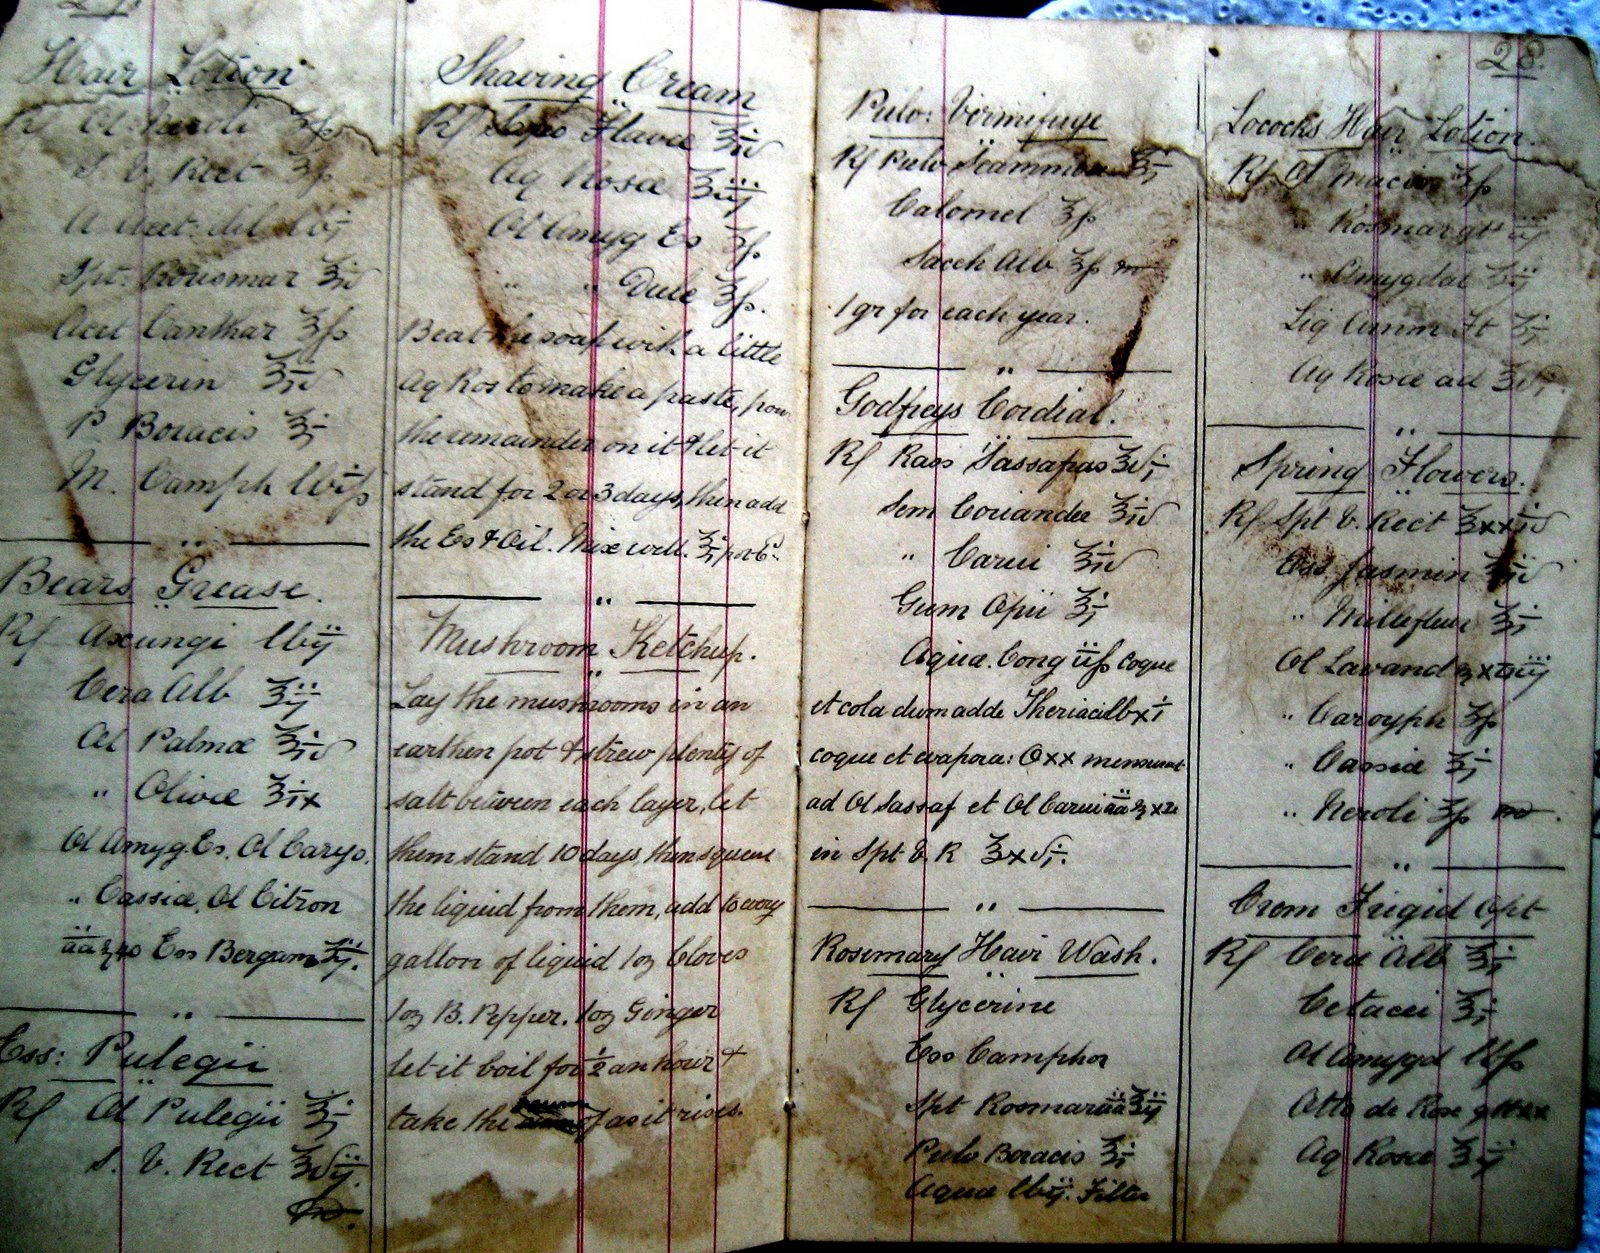 Hair Lotion
Rf Ol Neroli ʒſs
S. V. Rect ℥ſs
A. Acet. dil lb j
Spt. Rorismar ℥iv
Acet Canthar ℥ſs
Glycerin ℥iv
P. Boracis ℥j
M. Camph lb iſs
Bears Grease.
Rf Axungi lb ij
Cera Alb ℥ij
Ol Palmæ ℥iv
" Olivæ ℥ix
Ol Amyg Es. Ol Caryo.
" Cassiæ. Ol Citron
āā Ess Bergam ʒij.
Ess: Pulegii
Rf Ol Pulegii ℥j
S. V. Rect ℥vij.
Shaving Cream
Rf Sapo Flavæ ℥iv
Aq Rosæ ℥iij
Ol Amyg Es ʒſs
" " Dulc ʒſs.
Beat the soap with a little
Aq Ros to make a paste, pour
the remainder on it & let it
stand for 2 or 3 days, then add
the Es & Oil. Mix well.
Mushroom Ketchup.
Lay the mushrooms in an
earthen pot & strew plenty of
salt between each layer, let
them stand 10 days, then squeeze
the liquid from them, add to every
gallon of liquid 1 oz Cloves
1 oz B. Pepper. 1 oz Ginger
let it boil for ½ an hour &
take the scum of as it rises.
28.
Pulv: Vermifuge
Rf Pulv Scammon ʒj
Calomel ʒſs
Sacch Alb ʒſs m
1 gr for each year.
Godfreys Cordial.
Rf Rass Sassafras ℥vj
Sem Coriander ℥iv
" Carui ℥iv
Gum Opii ℥j
Aqua. Cong iiſs coque
et cola dum adde Theriaci lb xi
coque et evapora: Oxx mensurat
ad Ol Sassaf et Ol Carui āā
in Spt V. R ℥xvj.
Rosemary Hair Wash.
Rf Glycerine
Ess Camphor
Spt Rosmar āā ℥ij
Pulv Boracis ℥j
Aqua lb ij. Filter
Lococks Hair Lotion.
Rf Ol Macis ℥ſs
" Rosmar gtt ij
" Amygdal ʒij
Liq Amm Ft ʒj
Aq Rosæ ad ℥vj.
Spring Flowers.
Rf Spt V. Rect ℥xxiv
Ess Jasmin ℥iv
" Millefleur ℥j
Ol Lavand
" Caroyph ʒſs
" Cassiæ ʒj
" Neroli ʒſs m.
Crem Frigid Opt
Rf Ceræ Alb ℥j
Cetacei ℥j
Ol Amygd lb ſs
Atto de Rose gtt xx
Aq Rosæ ℥ij